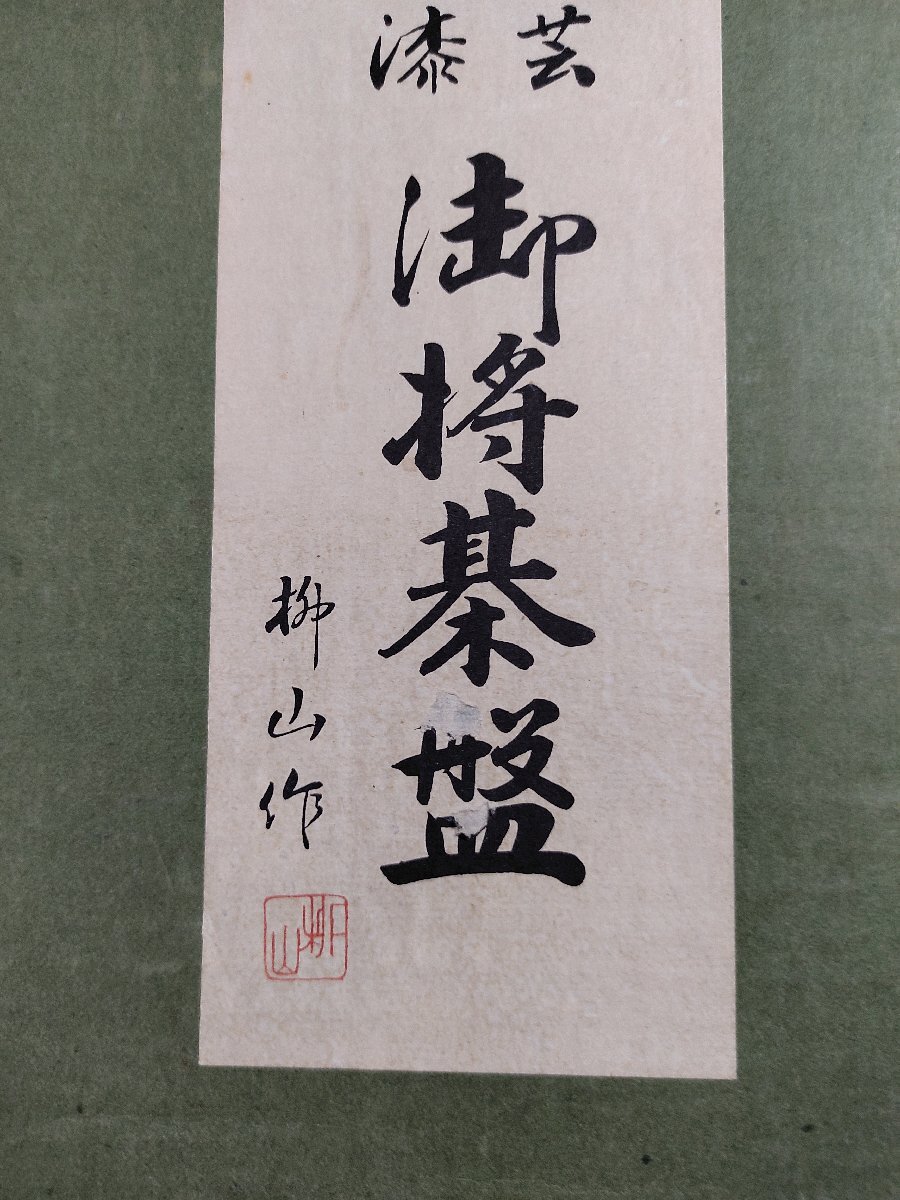 漆芸
御将棊盤
柳山作
柳山